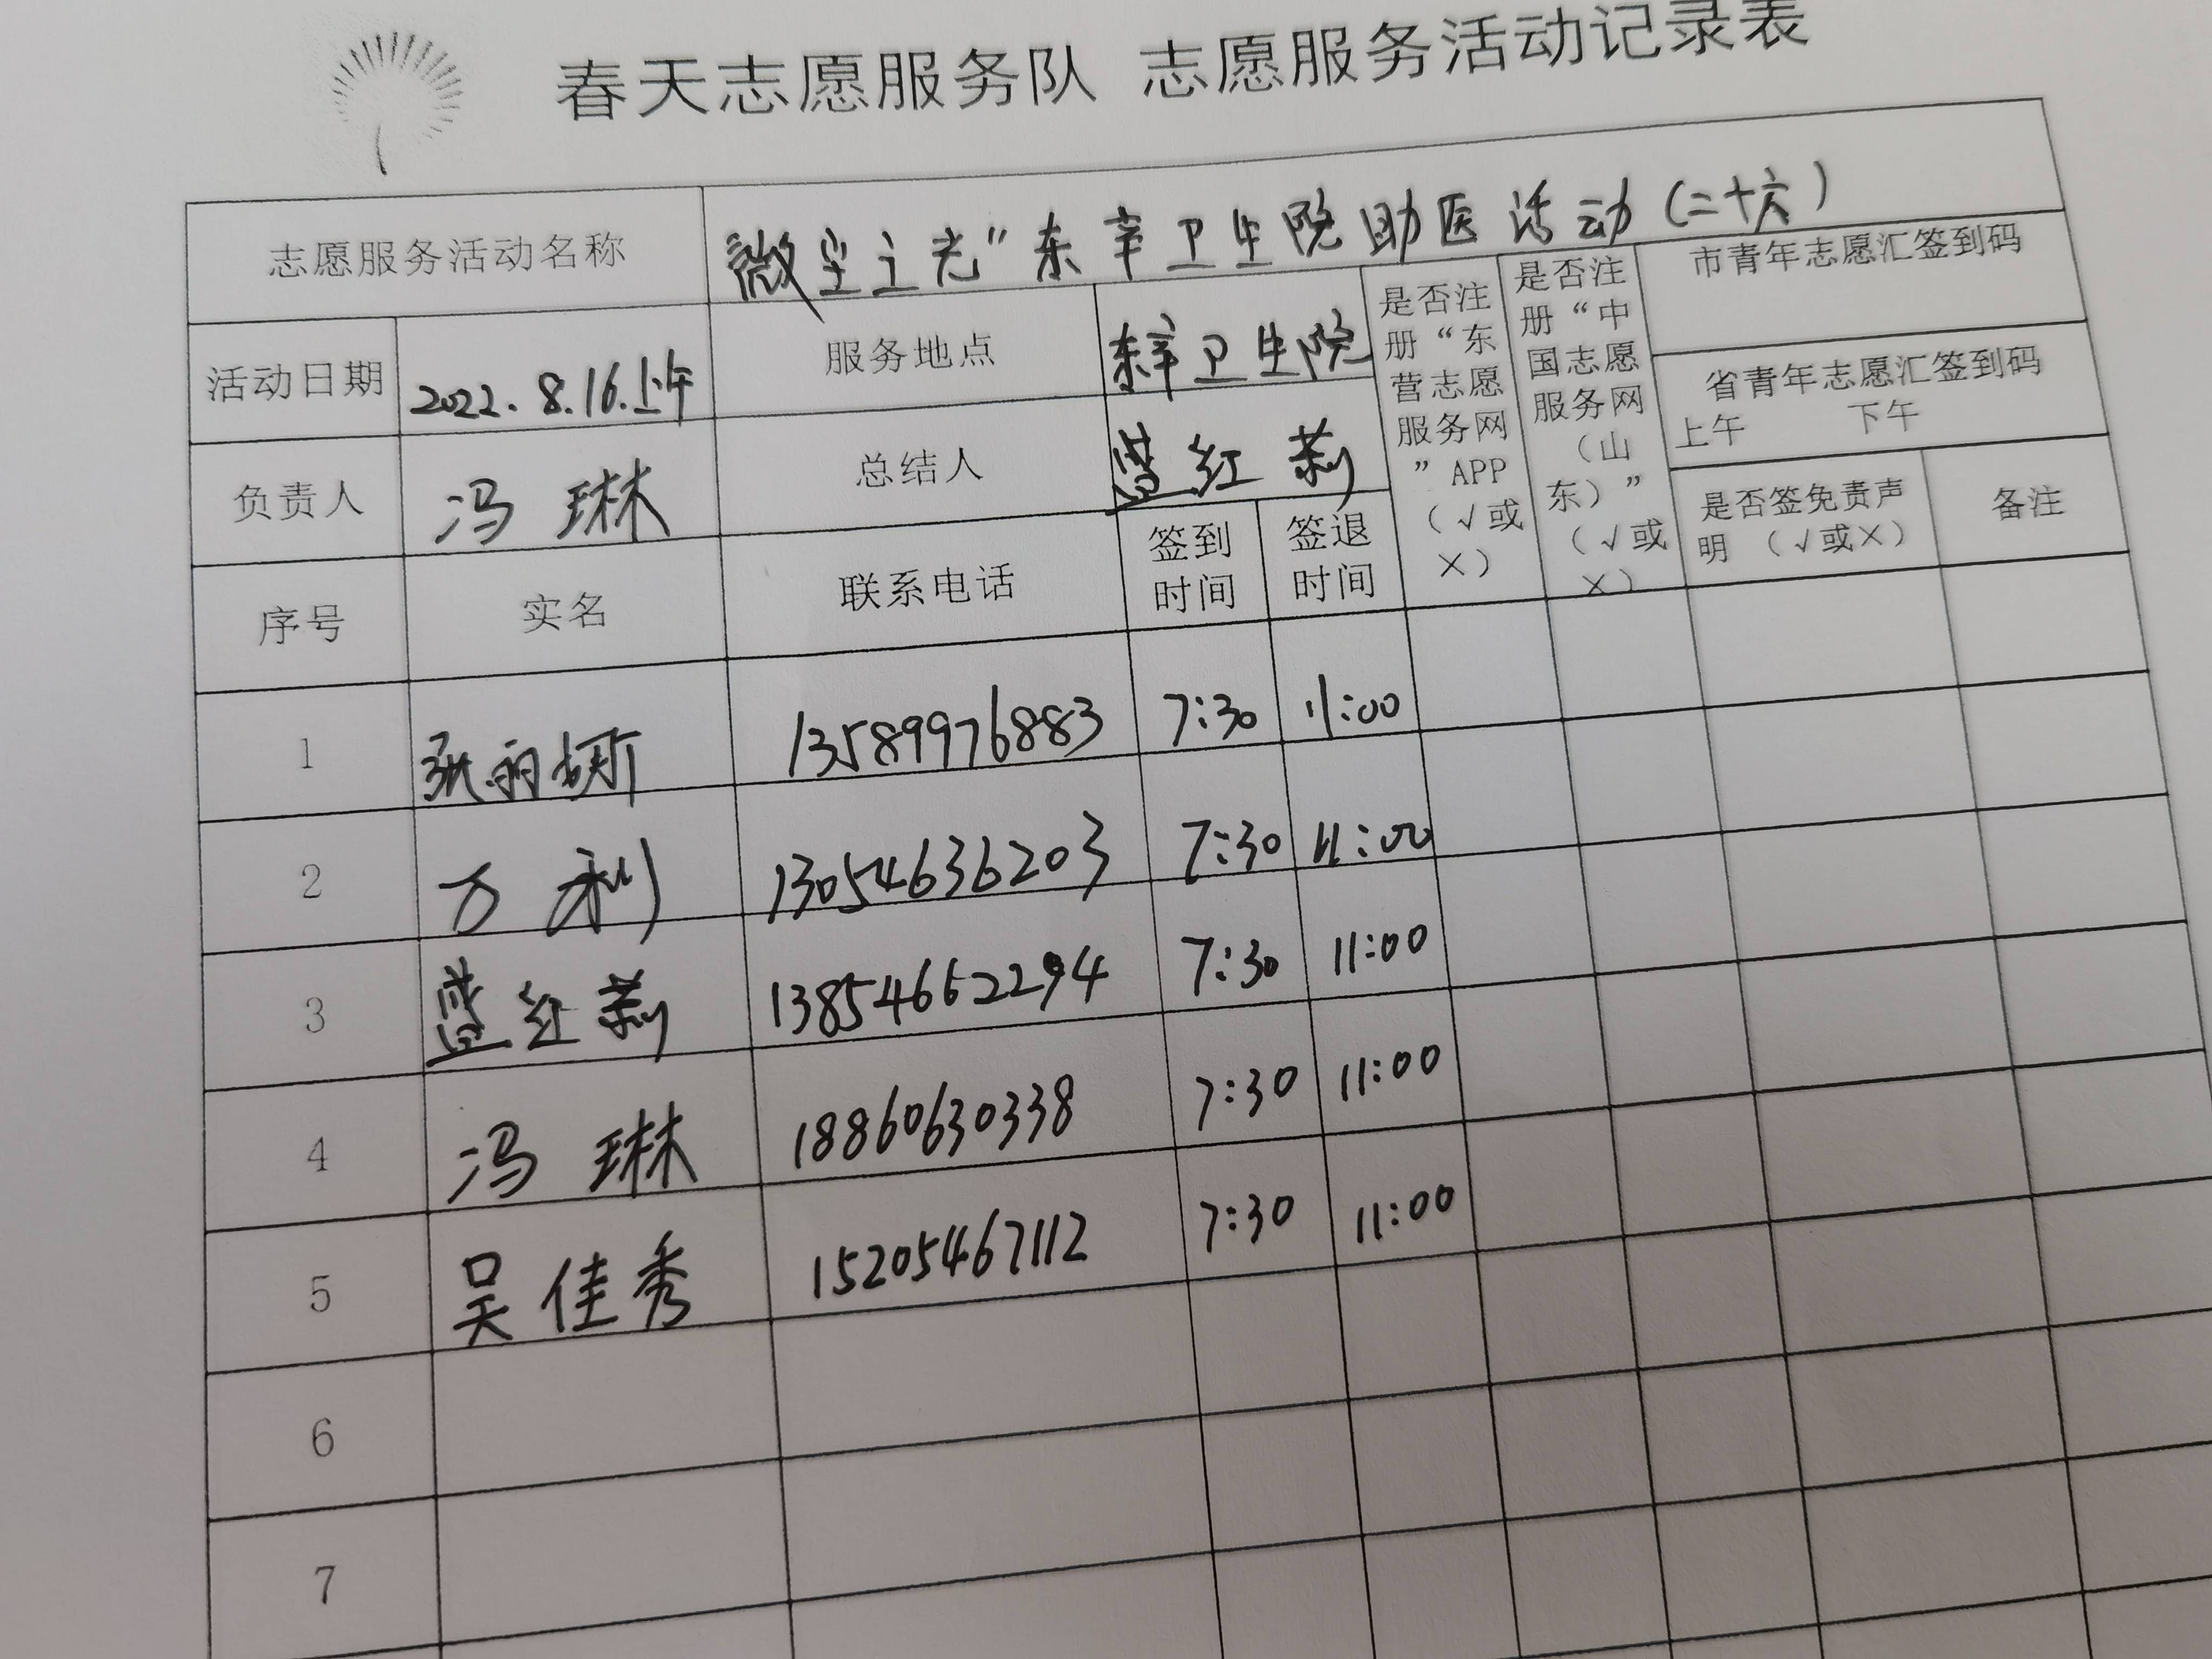 春天志愿服务队 志愿服务活动记录表
志愿服务活动名称 微尘之光"东辛卫生院助医活动(二十六)
活动日期 2022.8.16.上午 服务地点 东辛卫生院
负责人 冯琳 总结人 蓝红莉
是否注
册“东
营志愿
服务网
”APP
(√或
×)
是否注
册“中
国志愿
服务网
(山
东)”
(√或
×)
市青年志愿汇签到码
省青年志愿汇签到码
上午 下午
序号 实名 联系电话
签到
时间
签退
时间
是否签免责声
明 (√或×)
备注
1 张 妍 13589976883 7:30 11:00
2 万利 13054636203 7:30 11:00
3 蓝红莉 13854662294 7:30 11:00
4 冯琳 18860630338 7:30 11:00
5 吴佳秀 15205467112 7:30 11:00
6
7